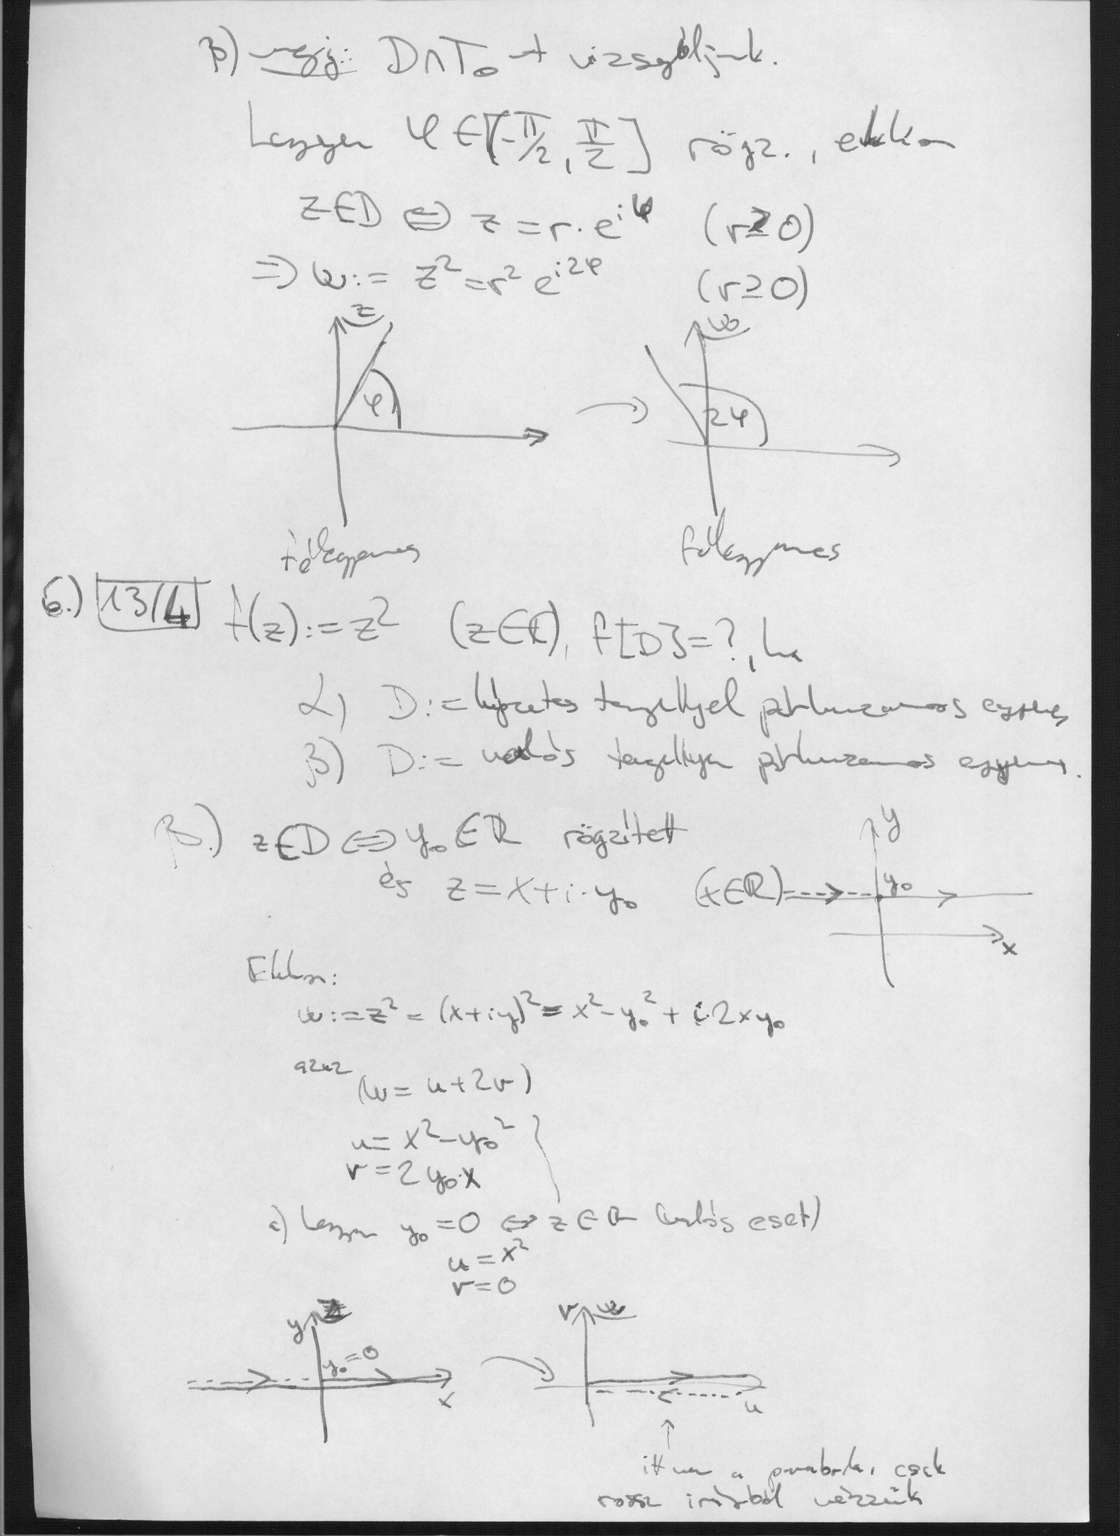 β) megj.: D∩T₀-t vizsgáljuk.
Legyen φ∈[-π/2, π/2] rögz., ekkor
z∈D ⇔ z = r·e^{iφ} (r≥0)
⇒ w:= z² = r² e^{i2φ} (r≥0)
z
w
φ
2φ
félegyenes
félegyenes
6.) 13/4 f(z):=z² (z∈ℂ), f[D]=?, ha
α) D:= képzetes tengellyel párhuzamos egyenes
β) D:= valós tengellyel párhuzamos egyenes.
β.) z∈D ⇔ y₀∈ℝ rögzített
és z = x+i·y₀ (x∈ℝ)
y
y₀
x
Ekkor:
w:=z² = (x+iy)² = x²-y₀² + i·2xy₀
azaz
(w = u+2v)
u = x²-y₀²
v = 2y₀·x
a) Legyen y₀=0 ⇔ z∈ℝ (valós eset)
u = x²
v = 0
y z
y₀=0
x
v w
u
itt van a parabola, csak
rossz irányból nézzük